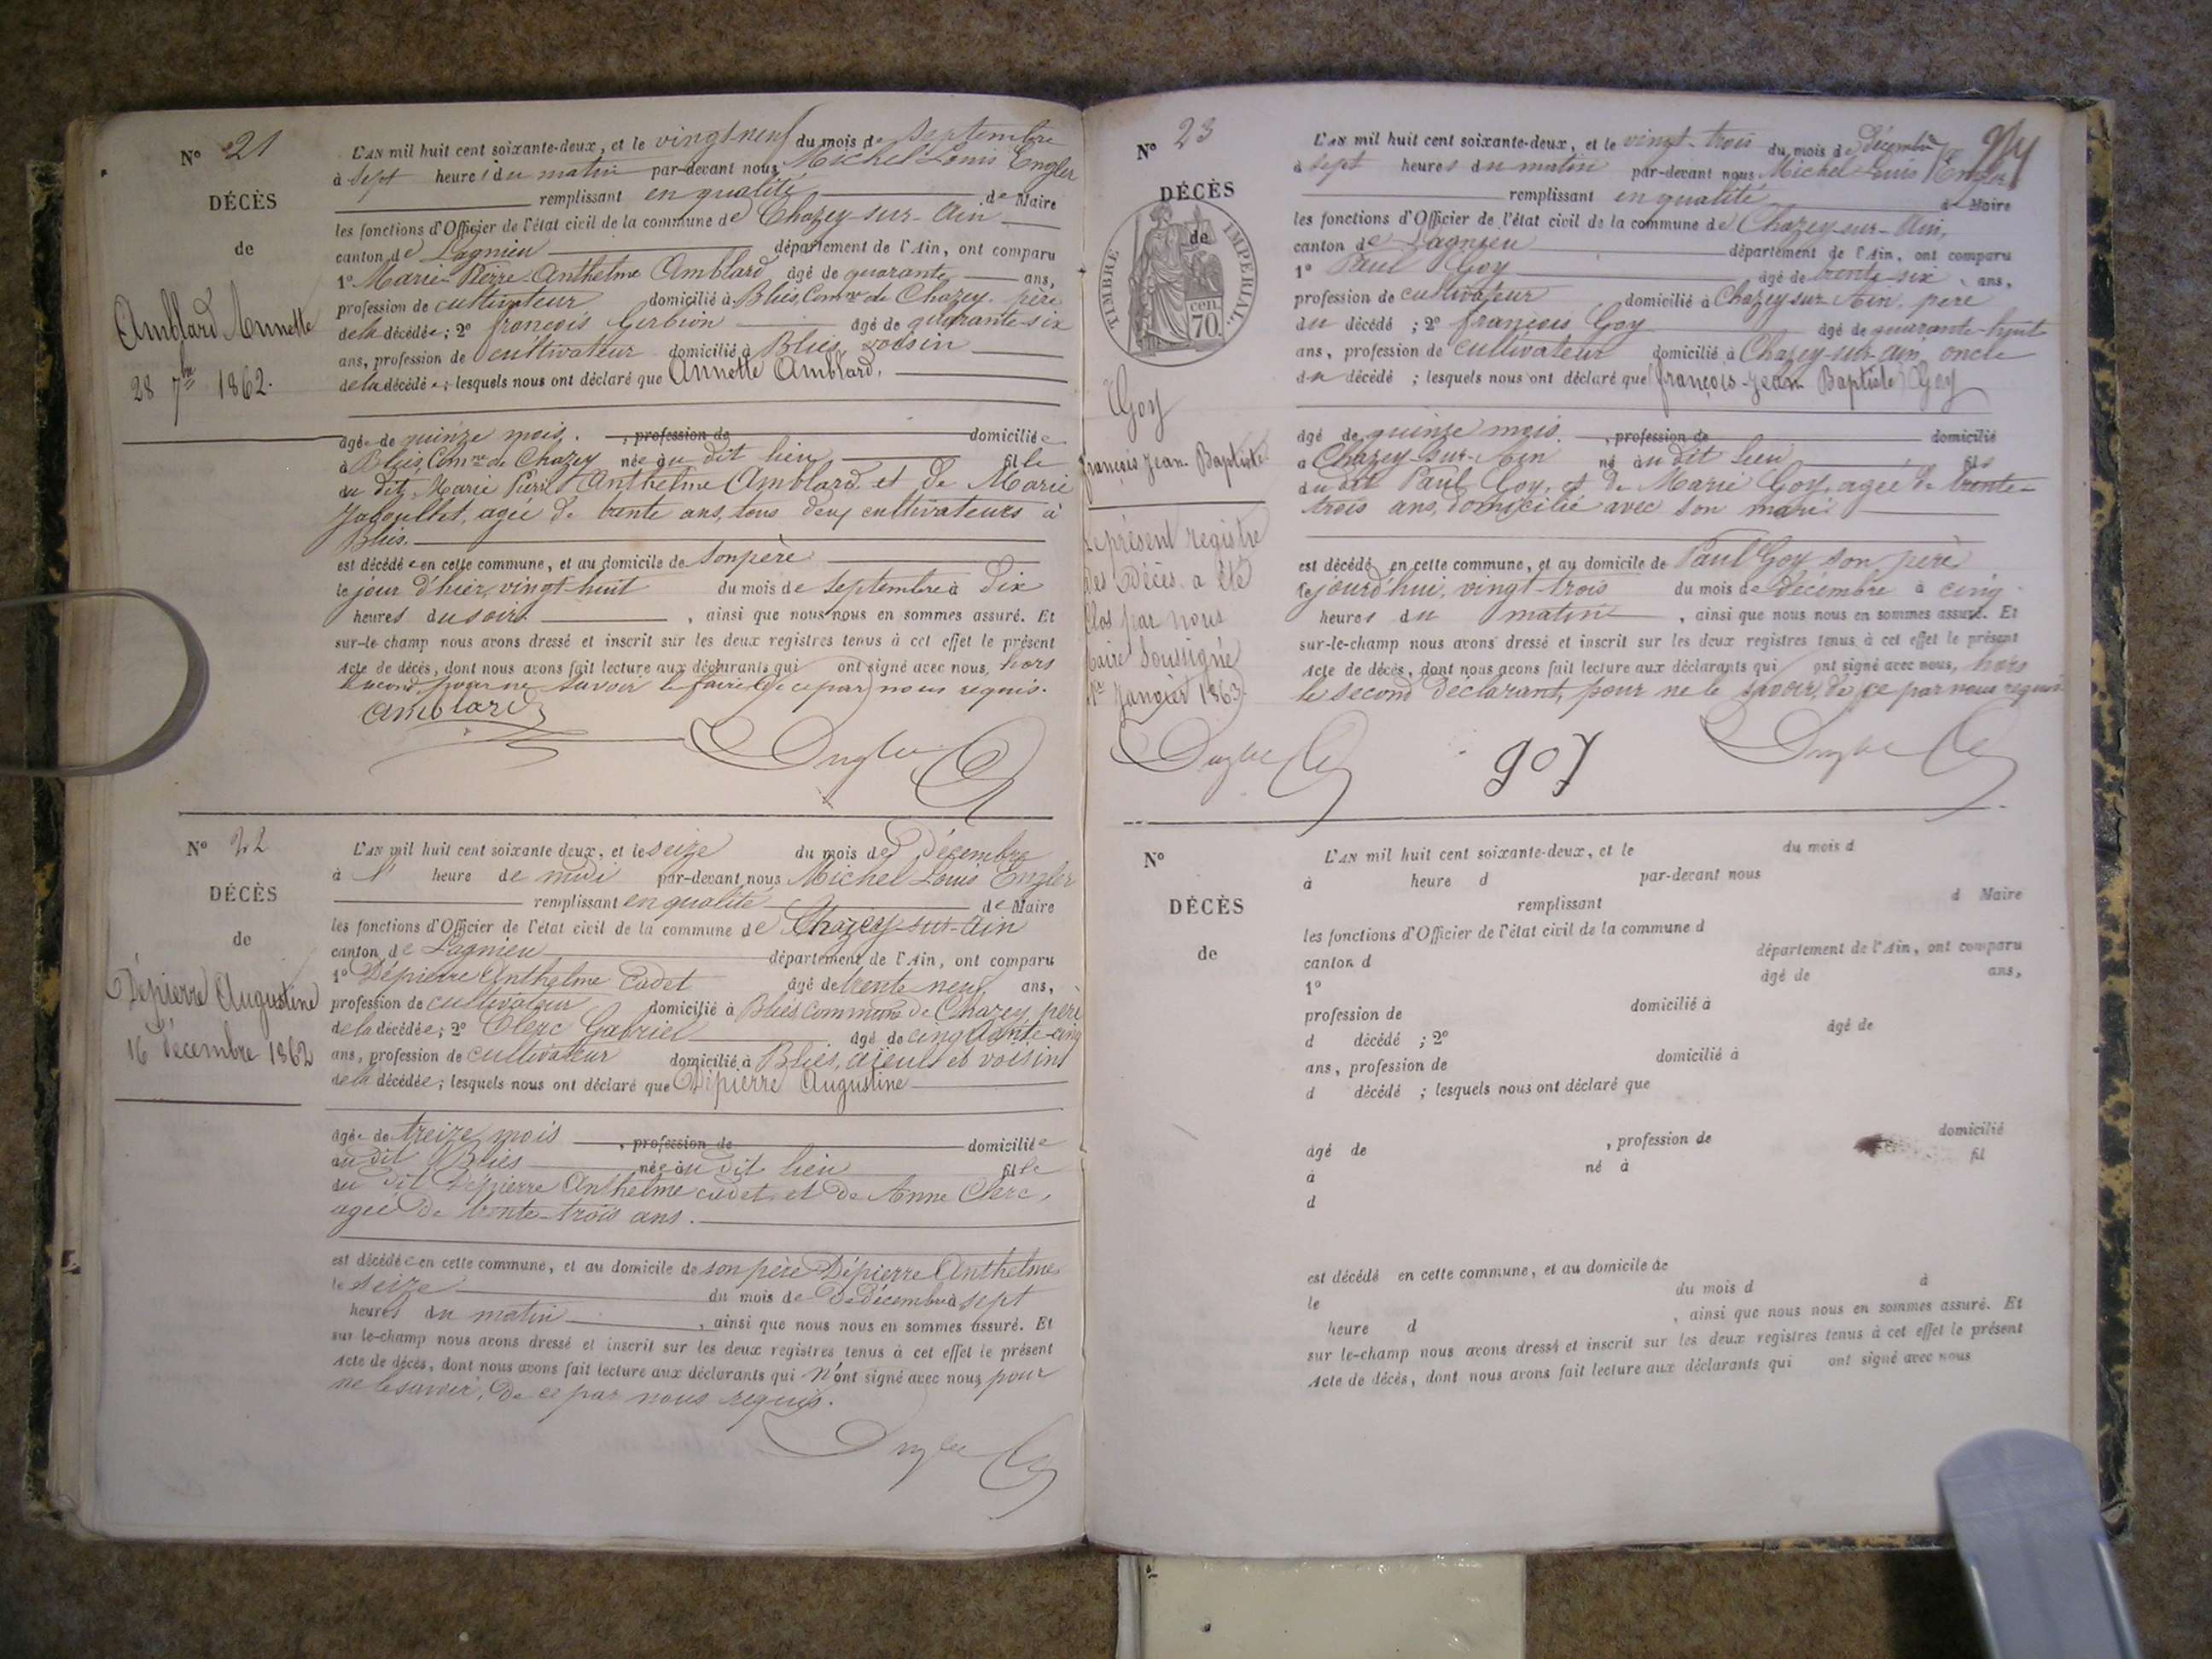 N° 21
DÉCÈS
de
Amblard Annette
28 7bre 1862.
L'AN mil huit cent soixante-deux, et le vingt-neuf du mois de Septembre
à Sept heures du matin par-devant nous Michel Louis Engler
remplissant en qualité de Maire
les fonctions d'Officier de l'état civil de la commune de Chazey-sur-Ain
canton de Lagnieu département de l'Ain, ont comparu
1° Marie-Pierre-Anthelme Amblard, âgé de quarante ans,
profession de cultivateur domicilié à Bliès, Comne de Chazey. père
de la décédée; 2° françois Gerbion âgé de quarante-six
ans, profession de cultivateur domicilié à Bliès, voisin
de la décédée; lesquels nous ont déclaré que Annette Amblard.
âgée de quinze mois. , profession de domiciliée
à Bliès, Comne de Chazey née àu dit lieu fille
du dit Marie Pierre Anthelme Amblard, et de Marie
agée de trente ans, tous deux cultivateurs à
Bliès.
est décédée en cette commune, et au domicile de son père
le jour d'hier, vingt-huit du mois de Septembre à dix
heures du soir , ainsi que nous nous en sommes assuré. Et
sur-le-champ nous avons dressé et inscrit sur les deux registres tenus à cet effet le présent
Acte de décès, dont nous avons fait lecture aux déclarants qui ont signé avec nous, hors
le second, pour ne savoir le faire de ce par nous requis.
Amblard
Engler
N° 22
DÉCÈS
de
Dépierre Augustine
16 Décembre 1862
L'AN mil huit cent soixante-deux, et le seize du mois de Décembre
à heure de midi par-devant nous Michel Louis Engler
remplissant en qualité de Maire
les fonctions d'Officier de l'état civil de la commune de Chazey-sur-Ain
canton de Lagnieu département de l'Ain, ont comparu
1° Dépierre Anthelme Cadet âgé de trente neuf ans,
profession de cultivateur domicilié à Bliès, commune de Chazey, père
de la décédée; 2° Clerc Gabriel âgé de cinquante-cinq
ans, profession de cultivateur domicilié à Bliès, aïeuls et voisins
de la décédée; lesquels nous ont déclaré que Dépierre Augustine
âgée de treize mois , profession de domiciliée
au dit Bliès née àu dit lieu fille
du dit Dépierre Anthelme cadet, et de Anne Clerc,
agée de trente-trois ans.
est décédée en cette commune, et au domicile de son père Dépierre Anthelme
le seize du mois de Décembre à sept
heures du matin , ainsi que nous nous en sommes assuré. Et
sur le-champ nous avons dressé et inscrit sur les deux registres tenus à cet effet le présent
Acte de décès, dont nous avons fait lecture aux déclarants qui n'ont signé avec nous, pour
ne le savoir, de ce par nous requis.
Engler
N° 23
DÉCÈS
de
TIMBRE IMPÉRIAL.
70 cen
Goy
françois Jean-Baptiste
Le présent registre
des Décès a été
Clos par nous
Maire Soussigné
1er Janvier 1863.
Engler
L'AN mil huit cent soixante-deux, et le vingt-trois du mois de Décembre
à sept heures du matin par-devant nous Michel Louis Engler
remplissant en qualité d Maire
les fonctions d'Officier de l'état civil de la commune de Chazey-sur-Ain,
canton de Lagnieu département de l'Ain, ont comparu
1° Paul Goy âgé de trente-six ans,
profession de cultivateur domicilié à Chazey-sur-Ain, père
du décédé ; 2° françois Goy âgé de quarante-huit
ans, profession de cultivateur domicilié à Chazey-sur-Ain, oncle
du décédé ; lesquels nous ont déclaré que françois-Jean-Baptiste Goy
âgé de quinze mois. , profession de domicilié
à Chazey-sur-Ain né àu dit lieu fils
du dit Paul Goy, et de Marie Goy, agée de trente-
trois ans, domicilié avec son mari.
est décédé en cette commune, et au domicile de Paul Goy son père
le jourd'hui, vingt-trois du mois de Décembre à cinq
heures du matin , ainsi que nous nous en sommes assuré. Et
sur-le-champ nous avons dressé et inscrit sur les deux registres tenus à cet effet le présent
Acte de décès, dont nous avons fait lecture aux déclarants qui ont signé avec nous, hors
le second déclarant, pour ne le savoir, de ce par nous requis
goy
Engler
N°
DÉCÈS
de
L'AN mil huit cent soixante-deux, et le du mois d
à heure d par-devant nous
remplissant d Maire
les fonctions d'Officier de l'état civil de la commune d
canton d département de l'Ain, ont comparu
1° âgé de ans,
profession de domicilié à
d décédé ; 2° âgé de
ans, profession de domicilié à
d décédé ; lesquels nous ont déclaré que
âgé de , profession de domicilié
à né à fil
d
est décédé en cette commune, et au domicile de
le du mois d à
heure d , ainsi que nous nous en sommes assuré. Et
sur le-champ nous avons dressé et inscrit sur les deux registres tenus à cet effet le présent
Acte de décès, dont nous avons fait lecture aux déclarants qui ont signé avec nous